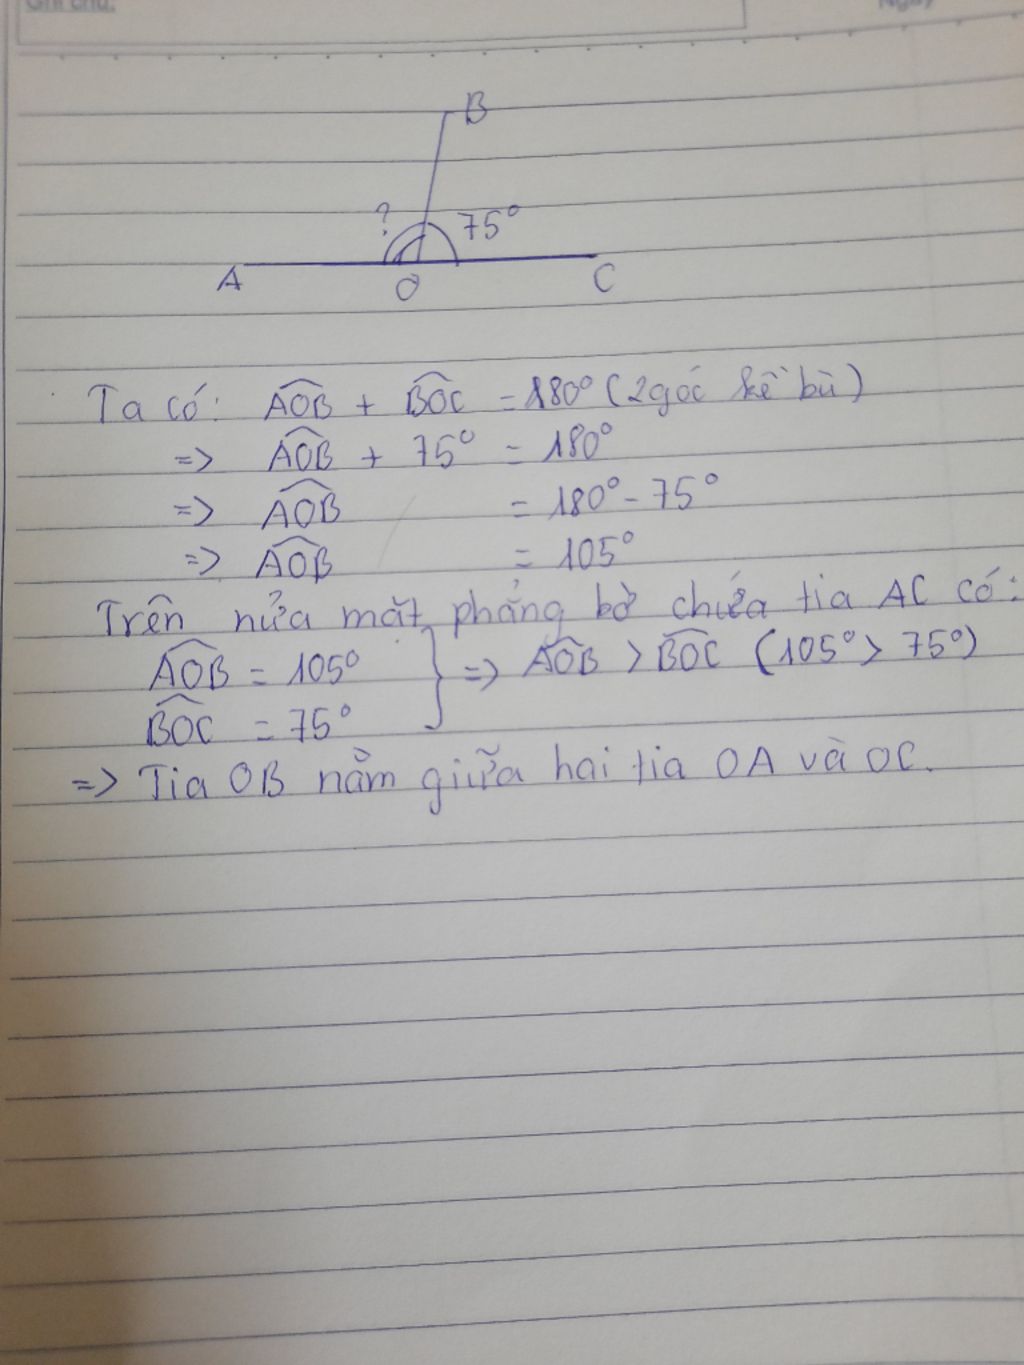 Ghi chú:
Ngày
B
? 75°
A O C
Ta có: AOB + BOC = 180° (2 góc kề bù)
=> AOB + 75° = 180°
=> AOB = 180° - 75°
=> AOB = 105°
Trên nửa mặt phẳng bờ chứa tia AC có:
AOB = 105° } => AOB > BOC (105° > 75°)
BOC = 75°
=> Tia OB nằm giữa hai tia OA và OC.